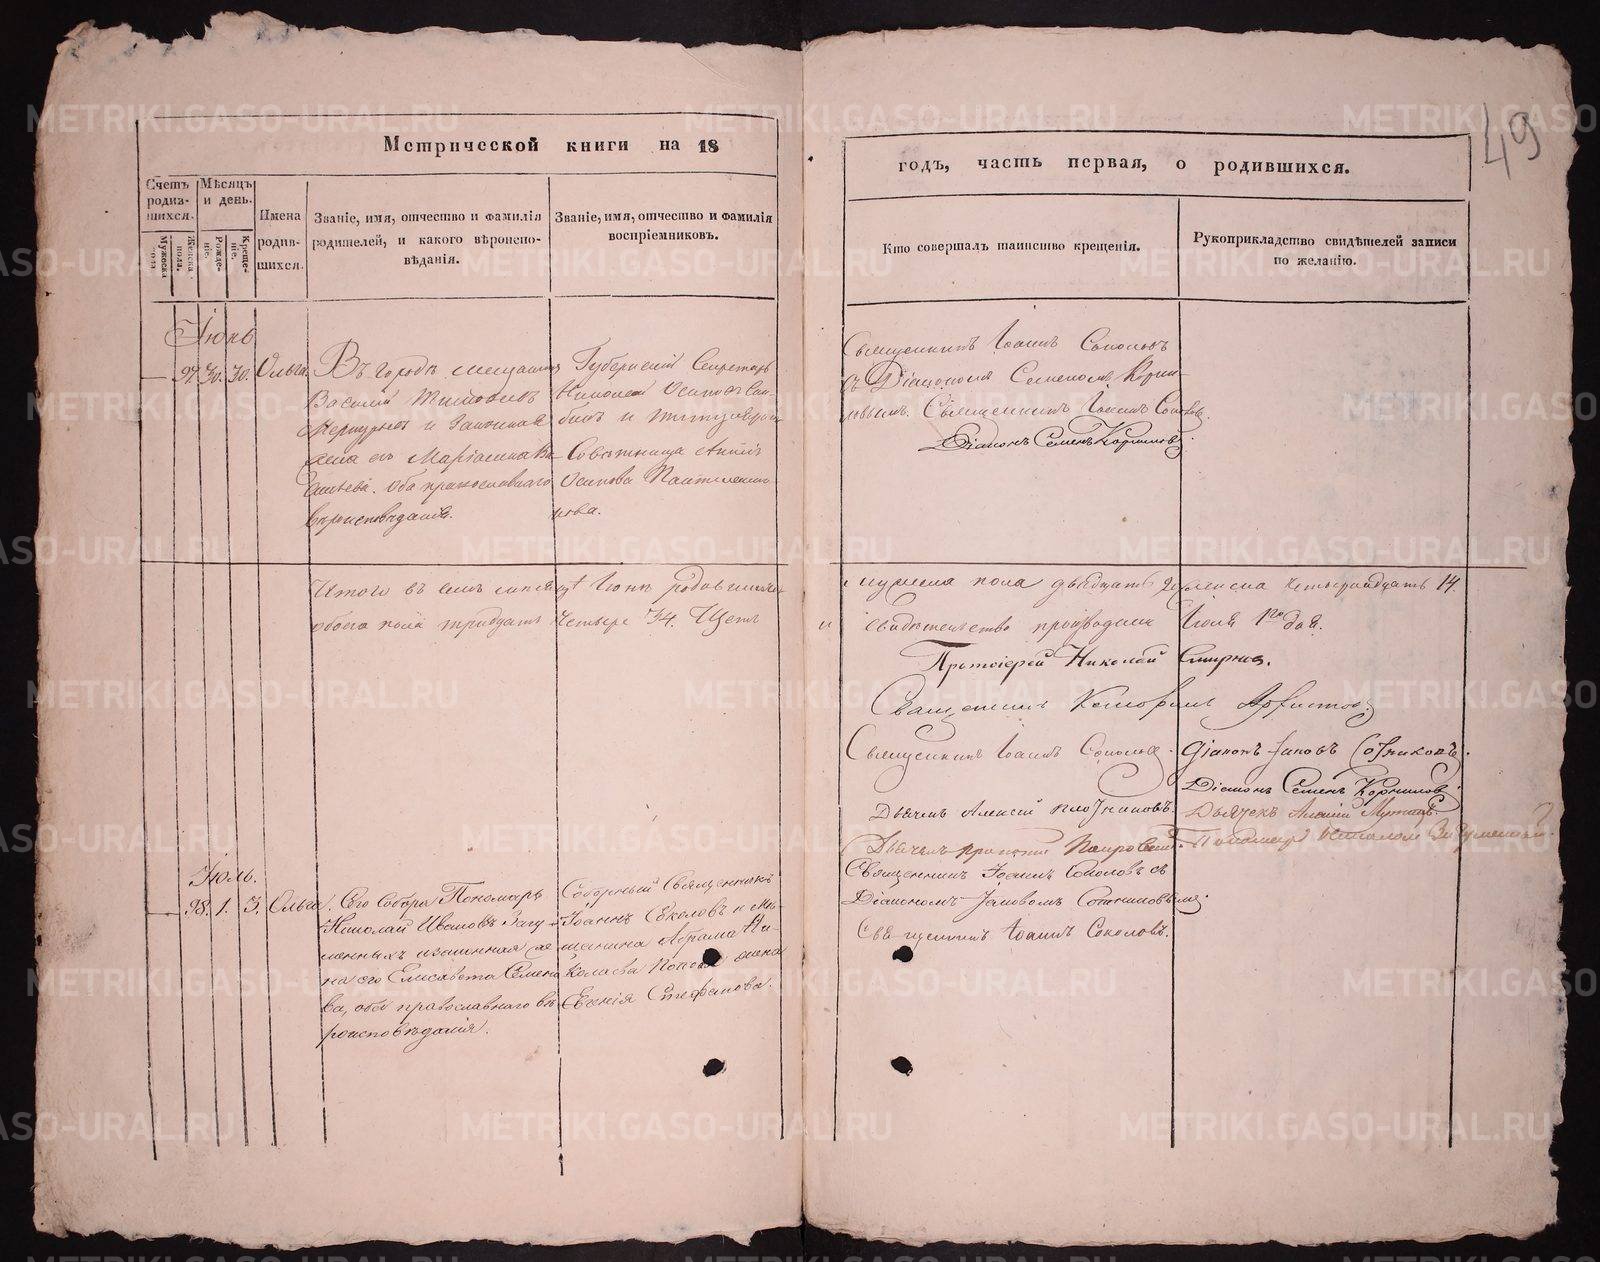 49
Метрической книги на 18
годъ, часть первая, о родившихся.
Счетъ родив-шихся.
Мѣсяцъ и день.
Мужеска пола.
Женска пола.
Рожде-нія.
Креще-нія.
Имена родив-шихся.
Званіе, имя, отчество и фамилія
родителей, и какого вѣроиспо-
вѣданія.
Званіе, имя, отчество и фамилія
воспріемниковъ.
Кто совершалъ таинство крещенія.
Рукоприкладство свидѣтелей записи
по желанію.
Іюнь
97. 30. 30. Ольга.
Въ городѣ мещанинъ
Василій
и законная
жена его Марія
оба православнаго
вѣроисповѣданія.
Губернскій Секретарь
Николай Осиповъ
и Титулярная
Совѣтница Анна
Осипова
Священникъ Іоаннъ Соколовъ
съ Діакономъ Семеномъ Корни-
ловымъ. Священникъ Іоаннъ Соколовъ.
Діаконъ Семенъ Корниловъ.
Итого въ семъ мѣсяцѣ Іюнѣ родившихся
обоего пола тридцать четыре 34. Щетъ
мужеска пола двадцать 20 женска четырнадцать 14.
и свидѣтельство производили Іюля 1го дня.
Протоіерей Николай Смирнов.
Священникъ
Священникъ Іоаннъ Соколов.
Діаконъ Іаковъ Сотниковъ.
Діаконъ Семенъ Корнилов
Дьячекъ Алексій Плотниковъ.
Дьячекъ Алексій
Дьячекъ
Пономарь Николай
Іюль.
98. 1. 3. Ольга.
Сего Собора Пономарь
Николай Ивановъ Загу-
менныхъ и законная же-
на его Елисавета Семено-
ва, оба православнаго вѣ-
роисповѣданія.
Соборный Священникъ
Іоаннъ Соколовъ и мѣ-
щанина Абрама Ни-
колаева Попова жена
Евгенія Стефанова.
Священникъ Іоаннъ Соколовъ съ
Діакономъ Іаковомъ Сотниковымъ.
Священникъ Іоаннъ Соколовъ.
METRIKI.GASO-URAL.RU